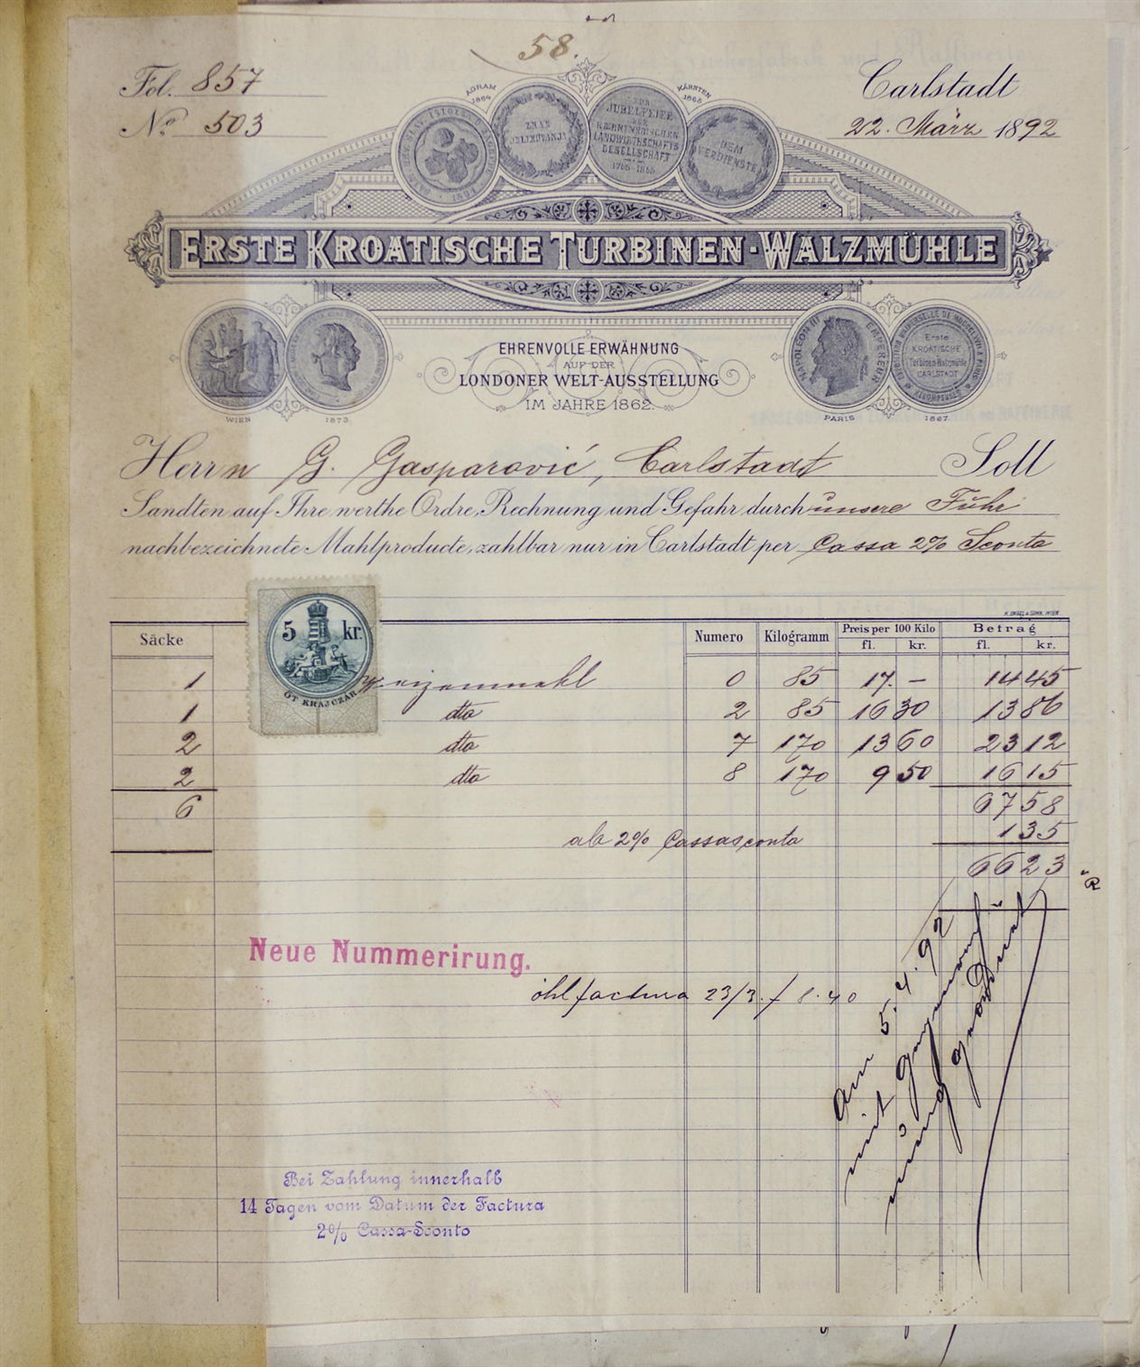 58.
Fol. 857
No 503
Carlstadt
22. März 1892
AGRAM 1864
KÄRNTEN 1865
ZUR JUBELFEIER DER KÄRNTNERISCHEN LANDWIRTHSCHAFTS GESELLSCHAFT
DEM VERDIENSTE
ERSTE KROATISCHE TURBINEN-WALZMÜHLE
EHRENVOLLE ERWÄHNUNG
AUF DER
LONDONER WELT-AUSSTELLUNG
IM JAHRE 1862.
NAPOLEON III EMPEREUR
Erste KROATISCHE Turbinen-Walzmühle CARLSTADT
WIEN 1873.
PARIS 1867.
Herrn G. Gasparović, Carlstadt Soll
Sandten auf Ihre werthe Ordre, Rechnung und Gefahr durch unsere Fuhr
nachbezeichnete Mahlproducte, zahlbar nur in Carlstadt per Cassa 2% Sconto
Säcke Numero Kilogramm Preis per 100 Kilo Betrag
fl. kr. fl. kr.
5 kr.
ÖT KRAJCZÁR
1 Weizenmehl 0 85 17.- 14 45
1 dto 2 85 16 30 13 86
2 dto 7 170 13 60 23 12
2 dto 8 170 9 50 16 15
6 67 58
ab 2% Cassasconto 1 35
66 23
Neue Nummerirung.
factura 23/3. / 8.40
Am 5.4.92
mit
Bei Zahlung innerhalb
14 Tagen vom Datum der Factura
2% Cassa-Sconto